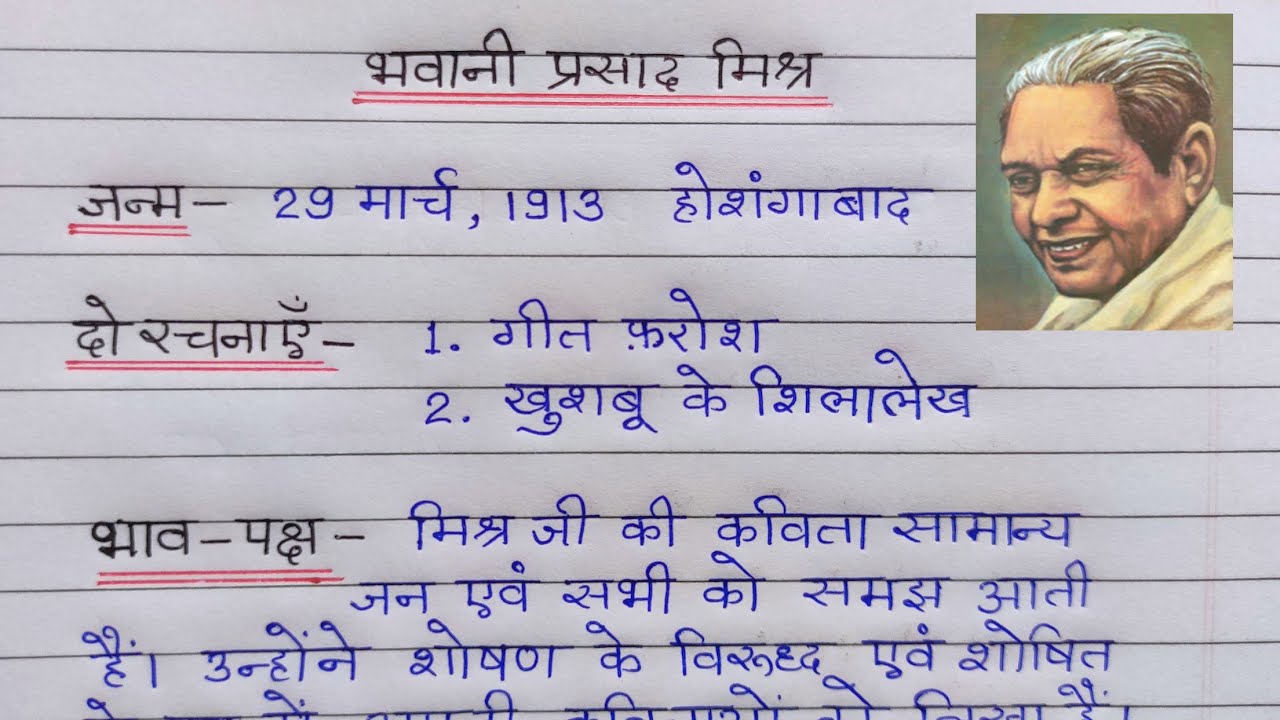 भवानी प्रसाद मिश्र
जन्म - 29 मार्च, 1913 होशंगाबाद
दो रचनाएँ - 1. गीत फ़रोश
2. खुशबू के शिलालेख
भाव - पक्ष - मिश्र जी की कविता सामान्य
जन एवं सभी को समझ आती
हैं। उन्होंने शोषण के विरूध्द एवं शोषित